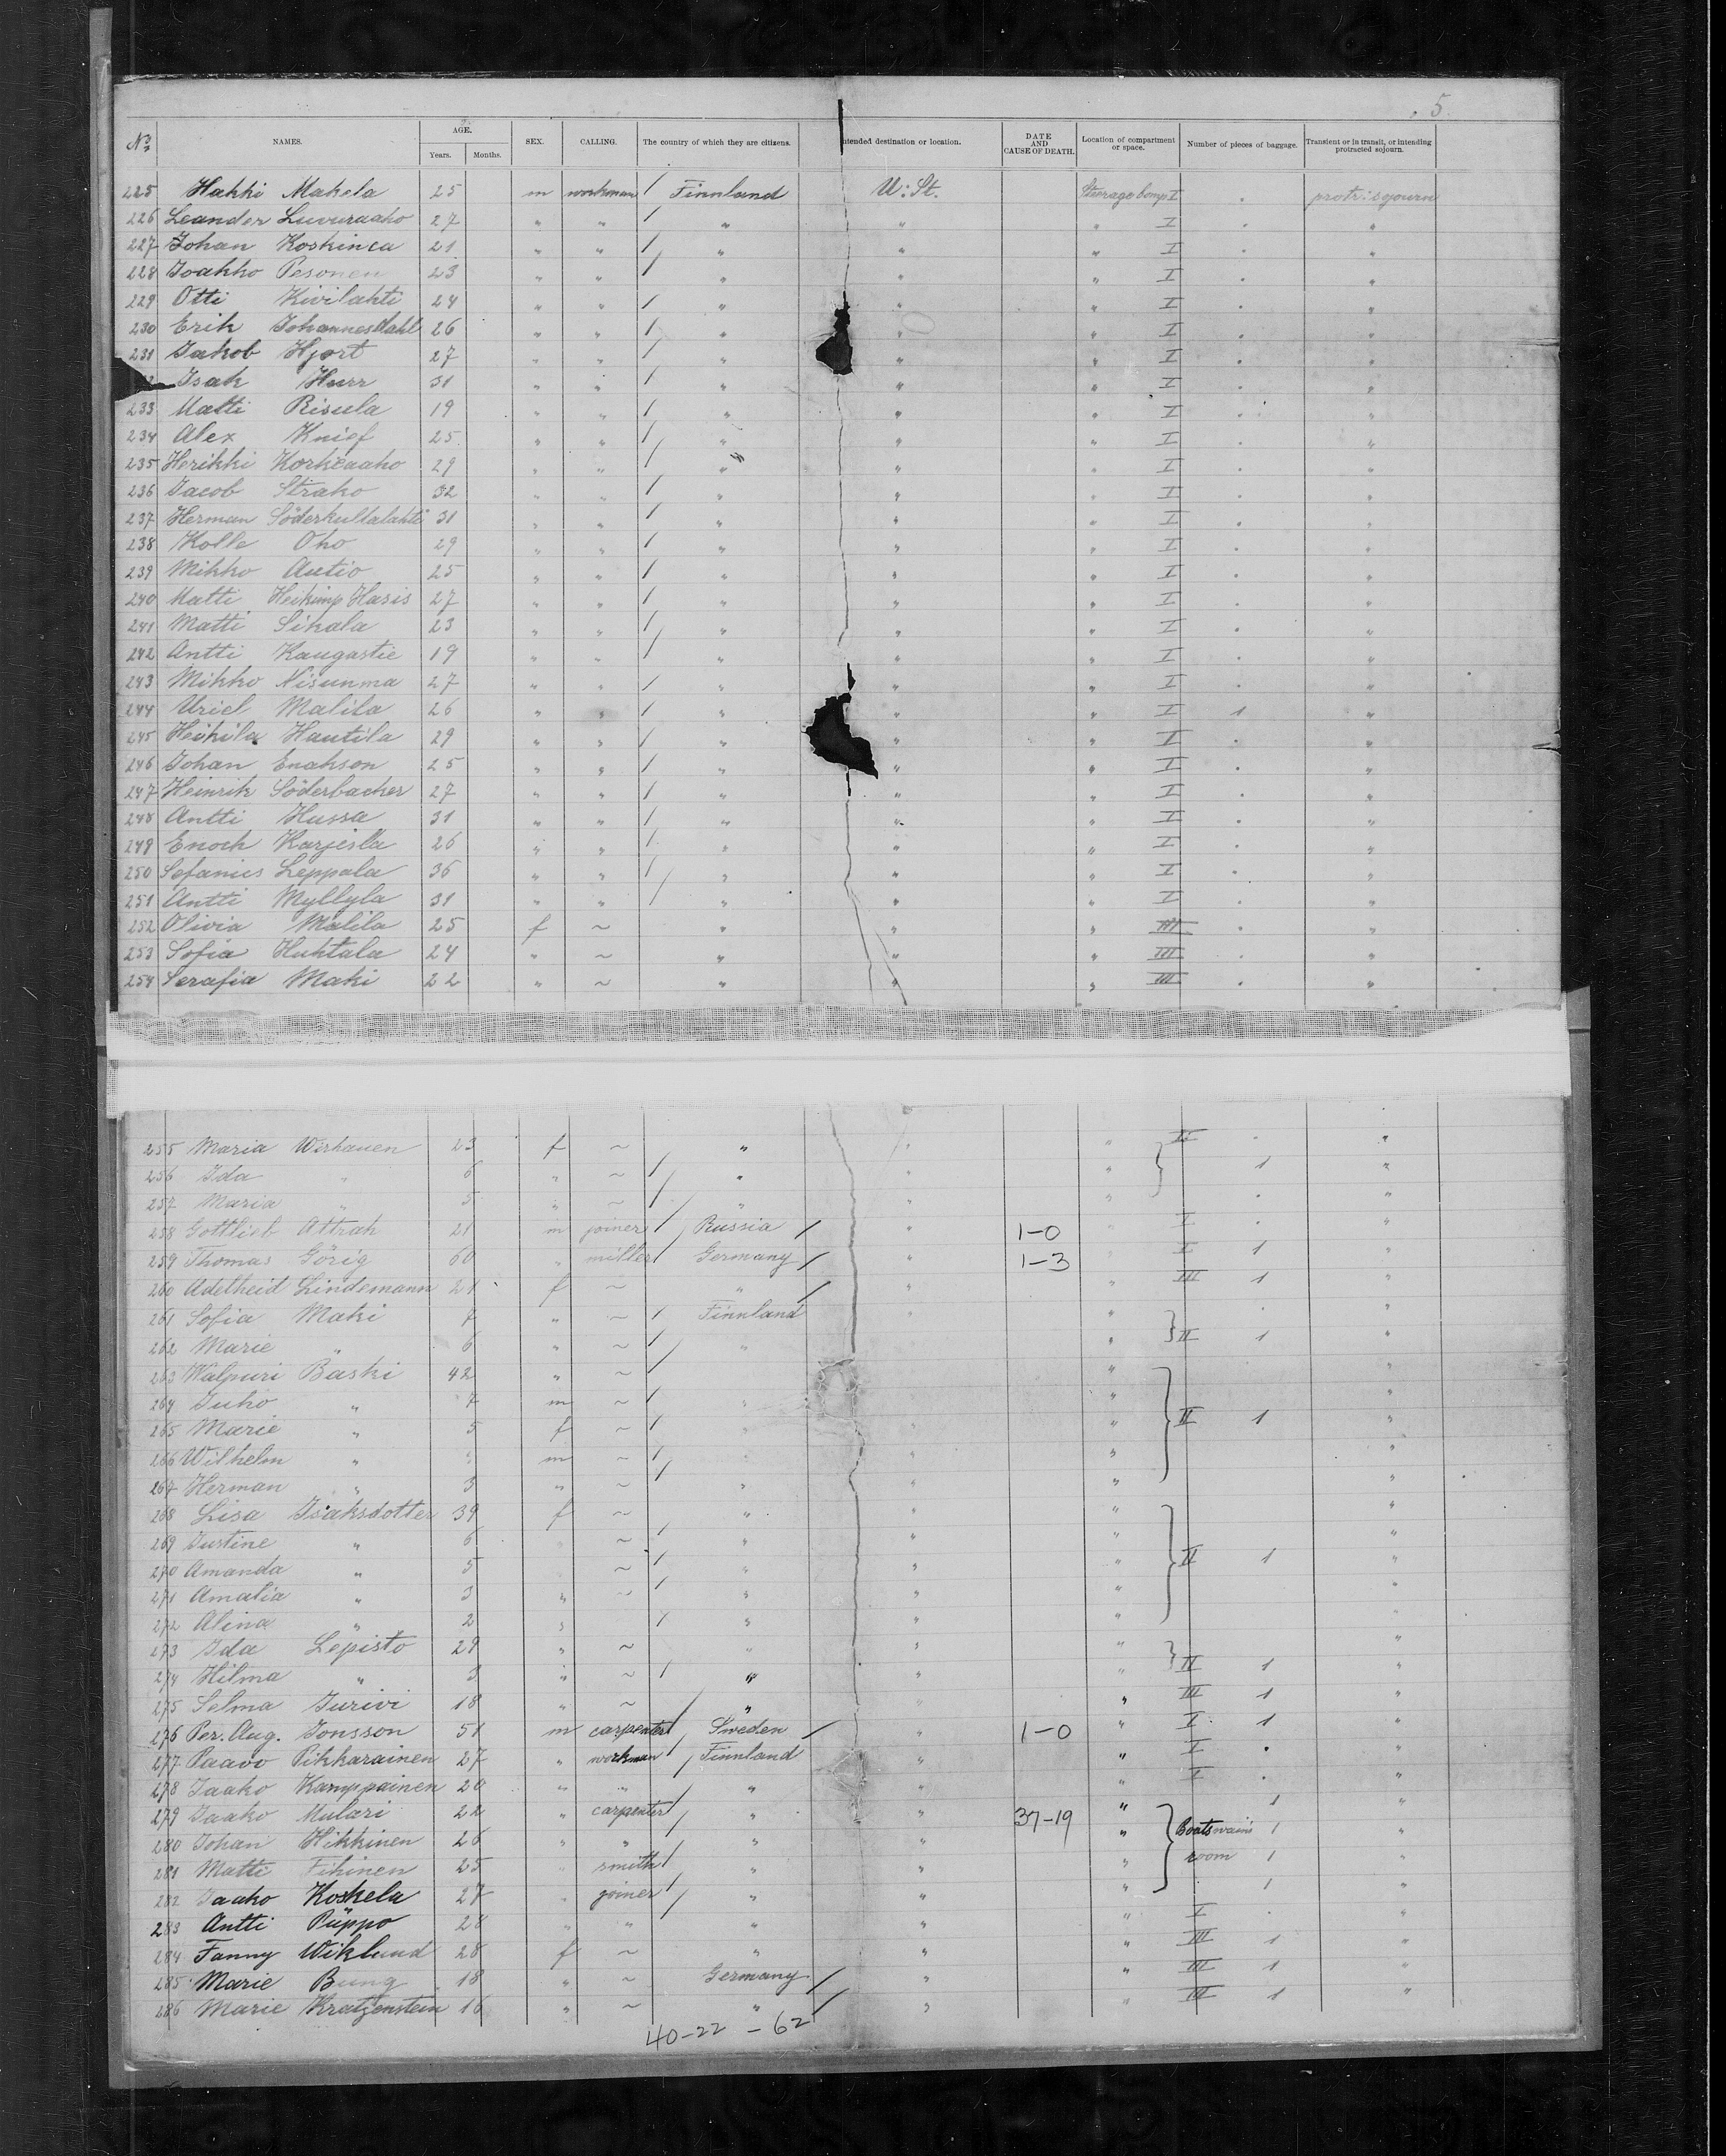 5
No NAMES. AGE. Years. Months. SEX. CALLING. The country of which they are citizens. Intended destination or location. DATE AND CAUSE OF DEATH. Location of compartment or space. Number of pieces of baggage. Transient or in transit, or intending protracted sojourn.
225 Hakki Makela 25 m workman / Finnland U: St. Steerage Comp I . protr: sojourn
226 Leander Luvuraaho 27 " " / " " " I . "
227 Johan Koskinea 21 " " / " " " I . "
228 Joakko Pesonen 23 " " / " " " I . "
229 Otti Kivilahti 24 " " / " " " I . "
230 Erik Johannesdahl 26 " " / " " " I . "
231 Jakob Hjort 27 " " / " " " I . "
Isak Hurr 31 " " / " " " I . "
233 Matti Risula 19 " " / " " " I . "
234 Alex Knief 25 " " / " " " I . "
235 Herikki Korkeaaho 29 " " / " " " I . "
236 Jacob Strako 32 " " / " " " I . "
237 Herman Söderkultalahti 31 " " / " " " I . "
238 Kolle Oho 29 " " / " " " I . "
239 Mikko Autio 25 " " / " " " I . "
240 Matti Heikimp Hasis 27 " " / " " " I . "
241 Matti Sikala 23 " " / " " " I . "
242 Antti Kaugastie 19 " " / " " " I . "
243 Mikko Nisunma 27 " " / " " " I . "
244 Uriel Malila 26 " " / " " " I 1 "
245 Heikila Hautila 29 " " / " " " I . "
246 Johan Enahson 25 " " / " " " I . "
247 Heinrik Söderbacker 27 " " / " " " I . "
248 Antti Hussa 31 " " / " " " I . "
249 Enoch Karjesla 26 " " / " " " I . "
250 Sefanius Leppala 36 " " / " " " I . "
251 Antti Myllyla 31 " " / " " " I . "
252 Olivia Malila 25 f ~ " " " III . "
253 Sofia Huhtala 24 " ~ " " " III . "
254 Serafia Maki 22 " ~ " " " III . "
255 Maria Wirhauen 23 f ~ " " " II . "
256 Ida " 6 " ~ / " " " 1 "
257 Maria " 5 " ~ / " " " . "
258 Gottlieb Attrah 21 m joiner / Russia / " 1-0 " I . "
259 Thomas Görig 60 " miller / Germany / " 1-3 " I 1 "
260 Adelheid Lindemann 21 f ~ " / " " III 1 "
261 Sofia Maki 7 " ~ / Finnland " " . "
262 Marie " 6 " ~ / " " II 1 "
263 Walpuri Baski 42 " ~ / " "
264 Juho " 7 m ~ / " " "
265 Marie " 5 f ~ / " " " II 1 "
266 Wilhelm " m ~ / " " "
267 Herman " 3 " ~ / " " " "
268 Lisa Isaksdotter 39 f ~ " " " "
269 Justine " 6 ~ / " " " "
270 Amanda " 5 ~ / " " " II 1 "
271 Amalia " 3 " ~ / " " " "
272 Alina " 2 " / " " " "
273 Ida Lepisto 29 " ~ " " " "
274 Hilma " 3 " ~ / " " " II 1 "
275 Selma Jurivi 18 " ~ / " " " III 1 "
276 Per. Aug. Jonsson 51 m carpenter / Sweden / " 1-0 " I 1 "
277 Paavo Pikkarainen 27 " workman / Finnland " " I . "
278 Jaako Kamppainen 20 " " / " " " I . "
279 Jaako Mulari 22 " carpenter / " " 37-19 " 1 "
280 Johan Hikkinen 26 " " / " " " Boatswain's 1 "
281 Matti Fihinen 25 " smith / " " " room 1 "
282 Jaako Koskela 27 " joiner / " " " 1 "
283 Antti Püppo 28 " " " " " I . "
284 Fanny Wiklund 28 f ~ " " " III 1 "
285 Marie Bung 18 " ~ Germany / " " III 1 "
286 Marie Kratzenstein 16 " ~ " / " " III 1 "
40-22 - 62